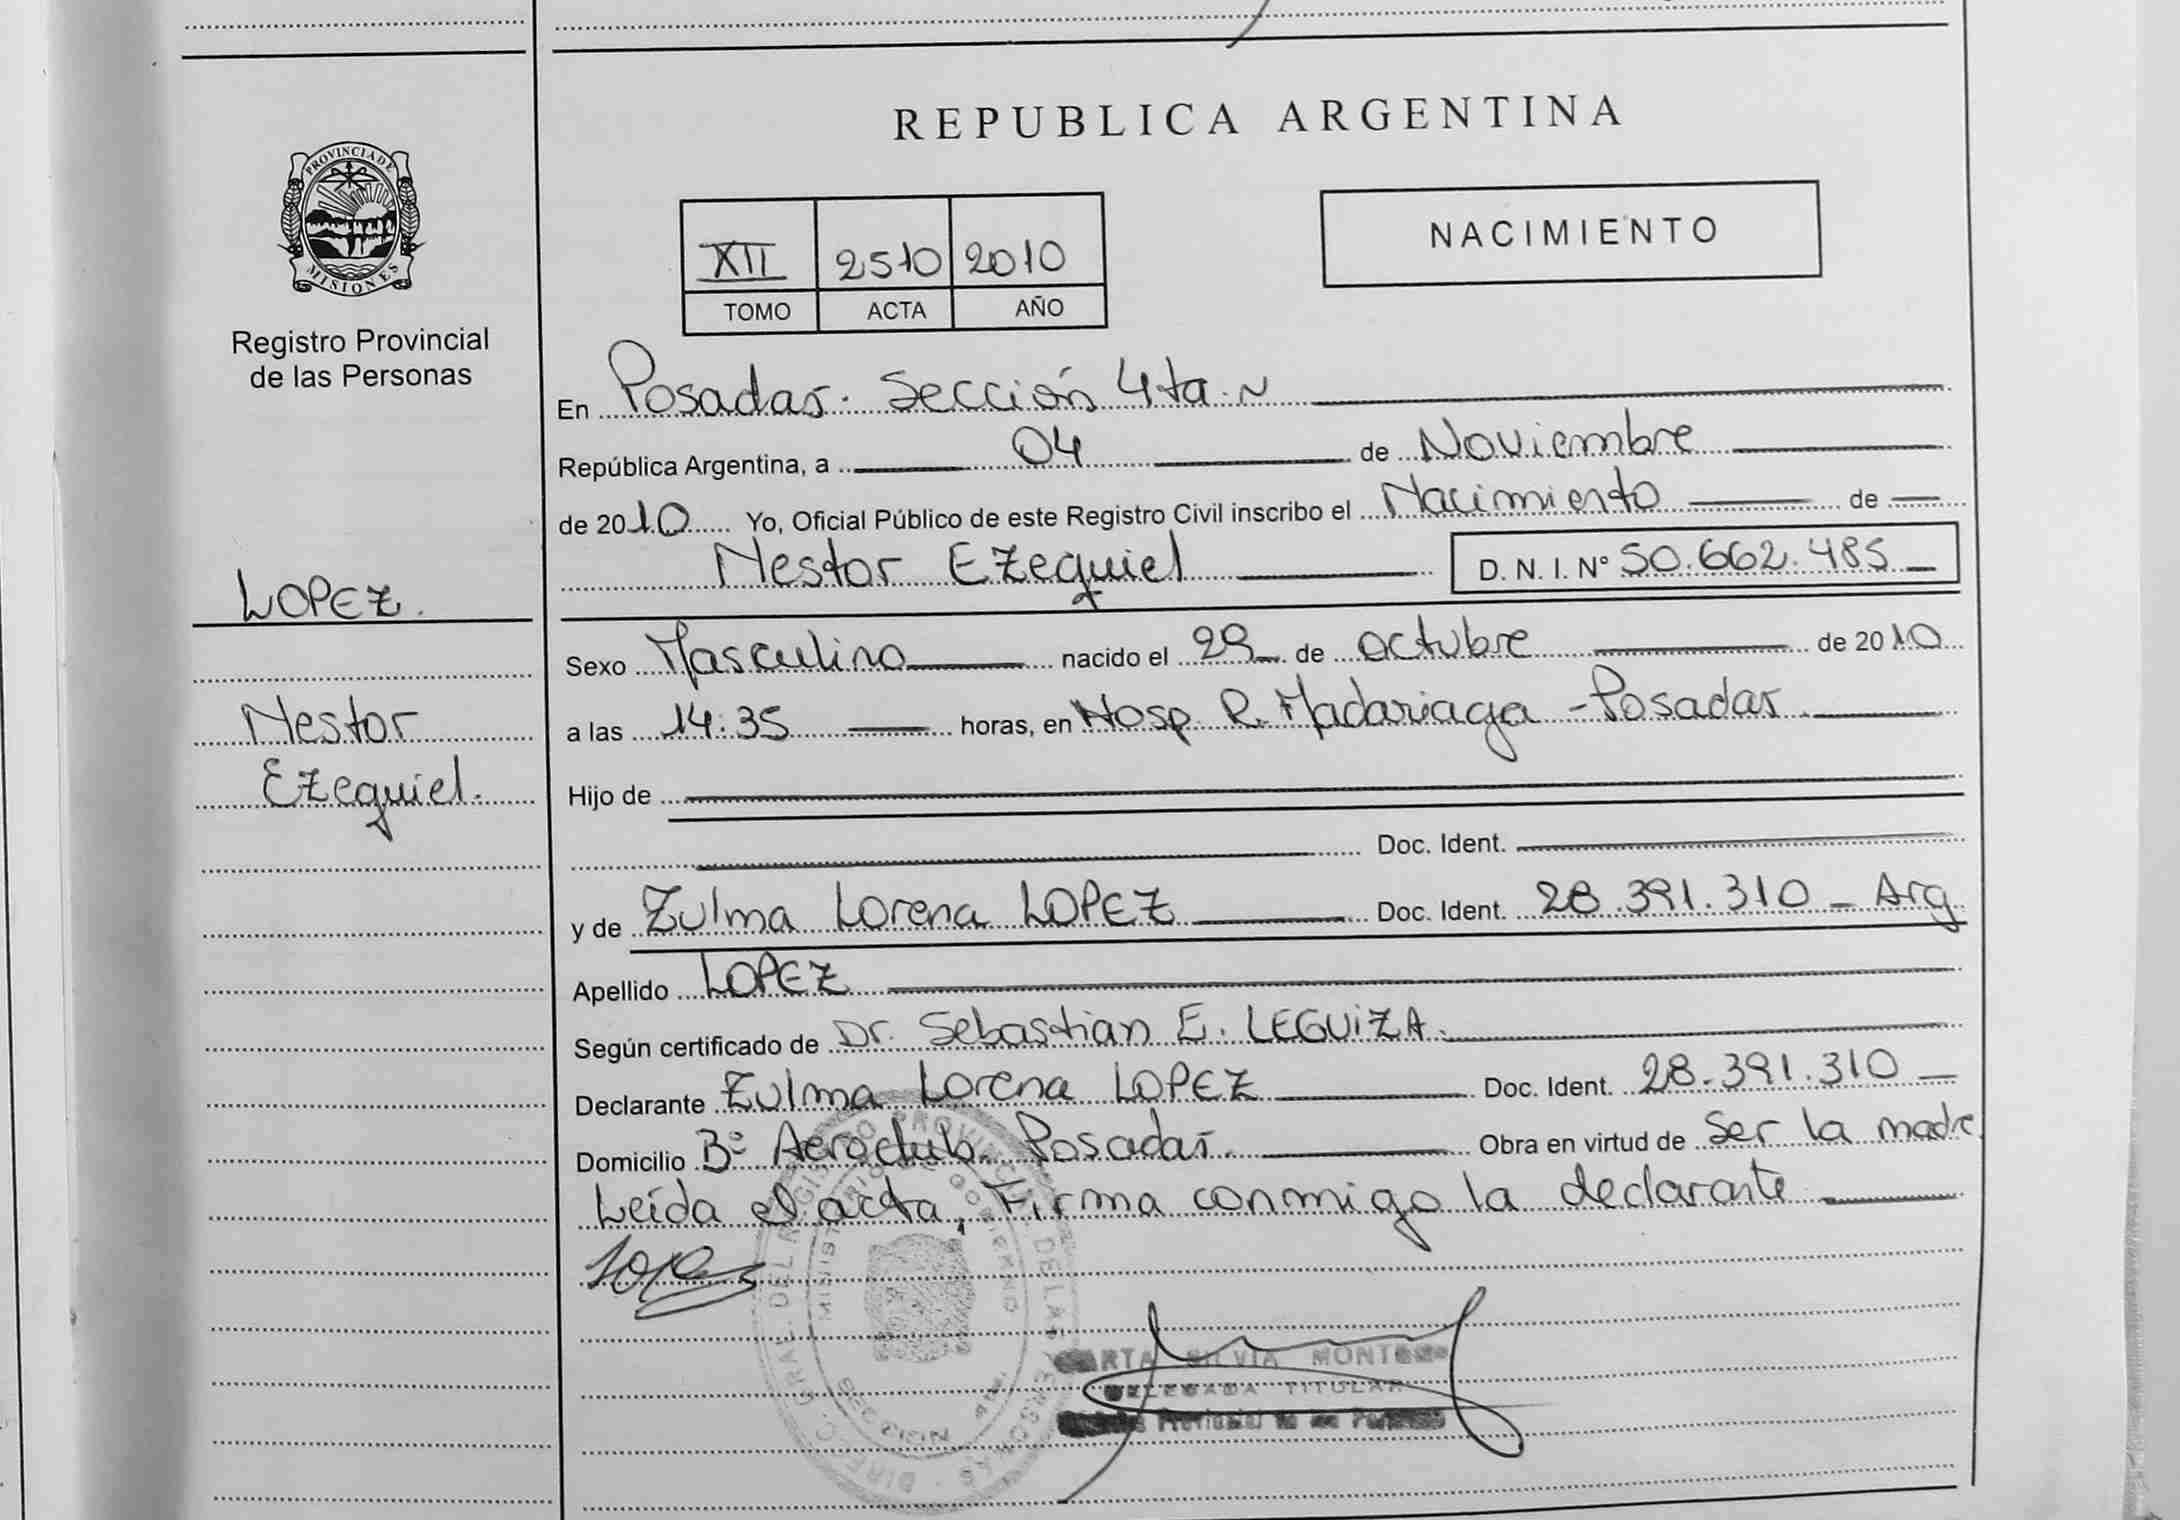 REPUBLICA ARGENTINA
PROVINCIA DE
MISIONES
Registro Provincial
de las Personas
XII 2510 2010
TOMO ACTA AÑO
NACIMIENTO
En Posadas. Sección 4ta.
República Argentina, a 04 de Noviembre
de 2010 Yo, Oficial Público de este Registro Civil inscribo el Nacimiento de
Nestor Ezequiel D. N. I. Nº 50.662.485
LOPEZ.
Nestor
Ezequiel.
Sexo Masculino nacido el 29 de octubre de 2010
a las 14:35 horas, en Hosp R. Madariaga - Posadas
Hijo de
Doc. Ident.
y de Zulma Lorena LOPEZ Doc. Ident. 28.391.310 - Arg
Apellido LOPEZ
Según certificado de Dr. Sebastian E. LEGUIZA.
Declarante Zulma Lorena LOPEZ Doc. Ident. 28.391.310
Domicilio Bº Aeroclub. Posadas. Obra en virtud de Ser la madre.
Leída el acta, Firma conmigo la declarante
Lopez
DIREC. GRAL. DEL REGISTRO PROVINCIAL DE LAS PERSONAS
MINISTERIO GOBIERNO
SILVIA
DELEGADA TITULAR
Provincial de las Personas